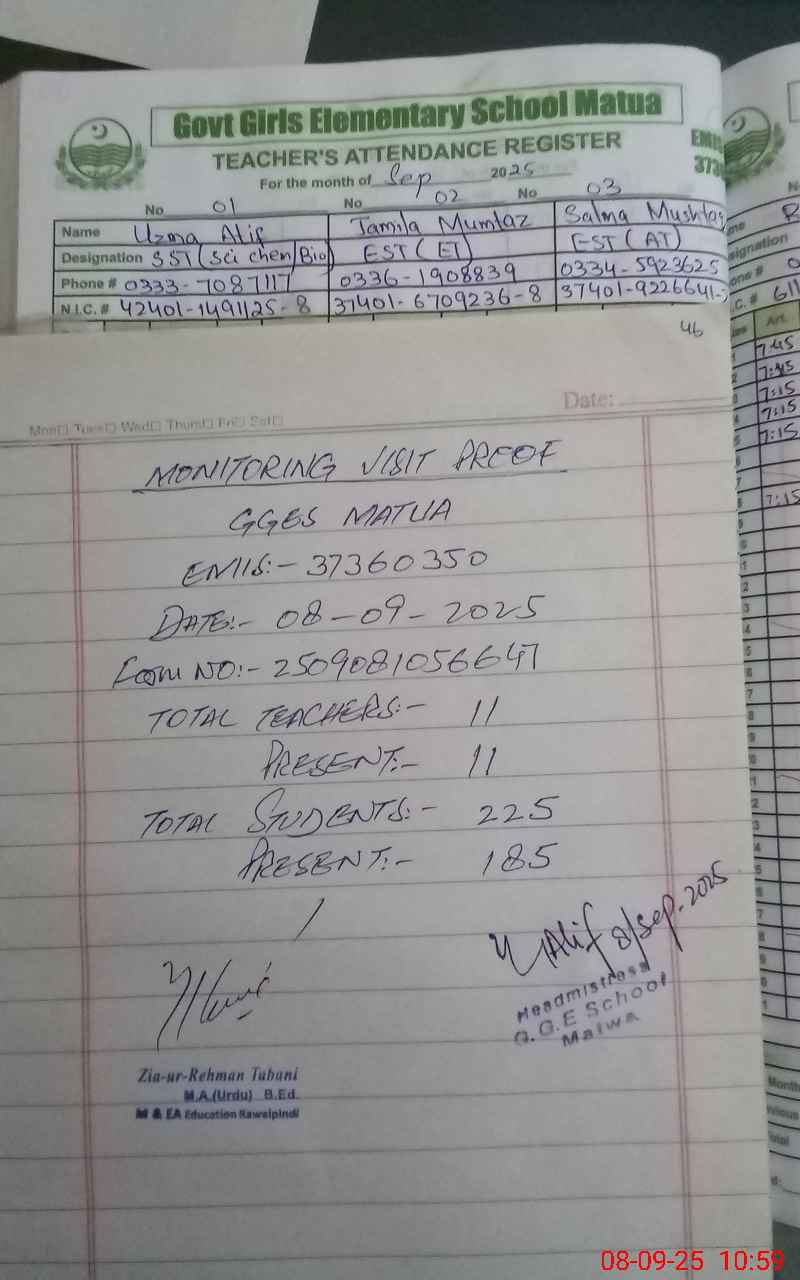 Govt Girls Elementary School Matua
TEACHER'S ATTENDANCE REGISTER
EMIS
373
For the month of Sep 2025
No 01 No 02 No 03
Name Uzma Atif Tamila Mumtaz Salma Mushtaq
Designation SST (Sci chem/Bio) EST (ET) EST (AT)
Phone # 0333-7087117 0336-1908839 0334-5923625
N.I.C. # 42401-1491125-8 37401-6709236-8 37401-9226641-
46
Art.
7:45
7:45
7:15
7:15
7:15
7:15
Date:
Mon Tues Wed Thurs Fri Sat
MONITORING VISIT PROOF
GGES MATUA
EMIS:- 37360350
DATE:- 08-09-2025
Form NO:- 2509081056647
TOTAL TEACHERS:- 11
PRESENT:- 11
TOTAL STUDENTS:- 225
PRESENT:- 185
UAtif 8/sep-2025
Headmistress
G.G.E School
Matwa
Zia-ur-Rehman Tabani
M.A.(Urdu) B.Ed.
M & EA Education Rawalpindi
Month
vious
Total
08-09-25 10:59